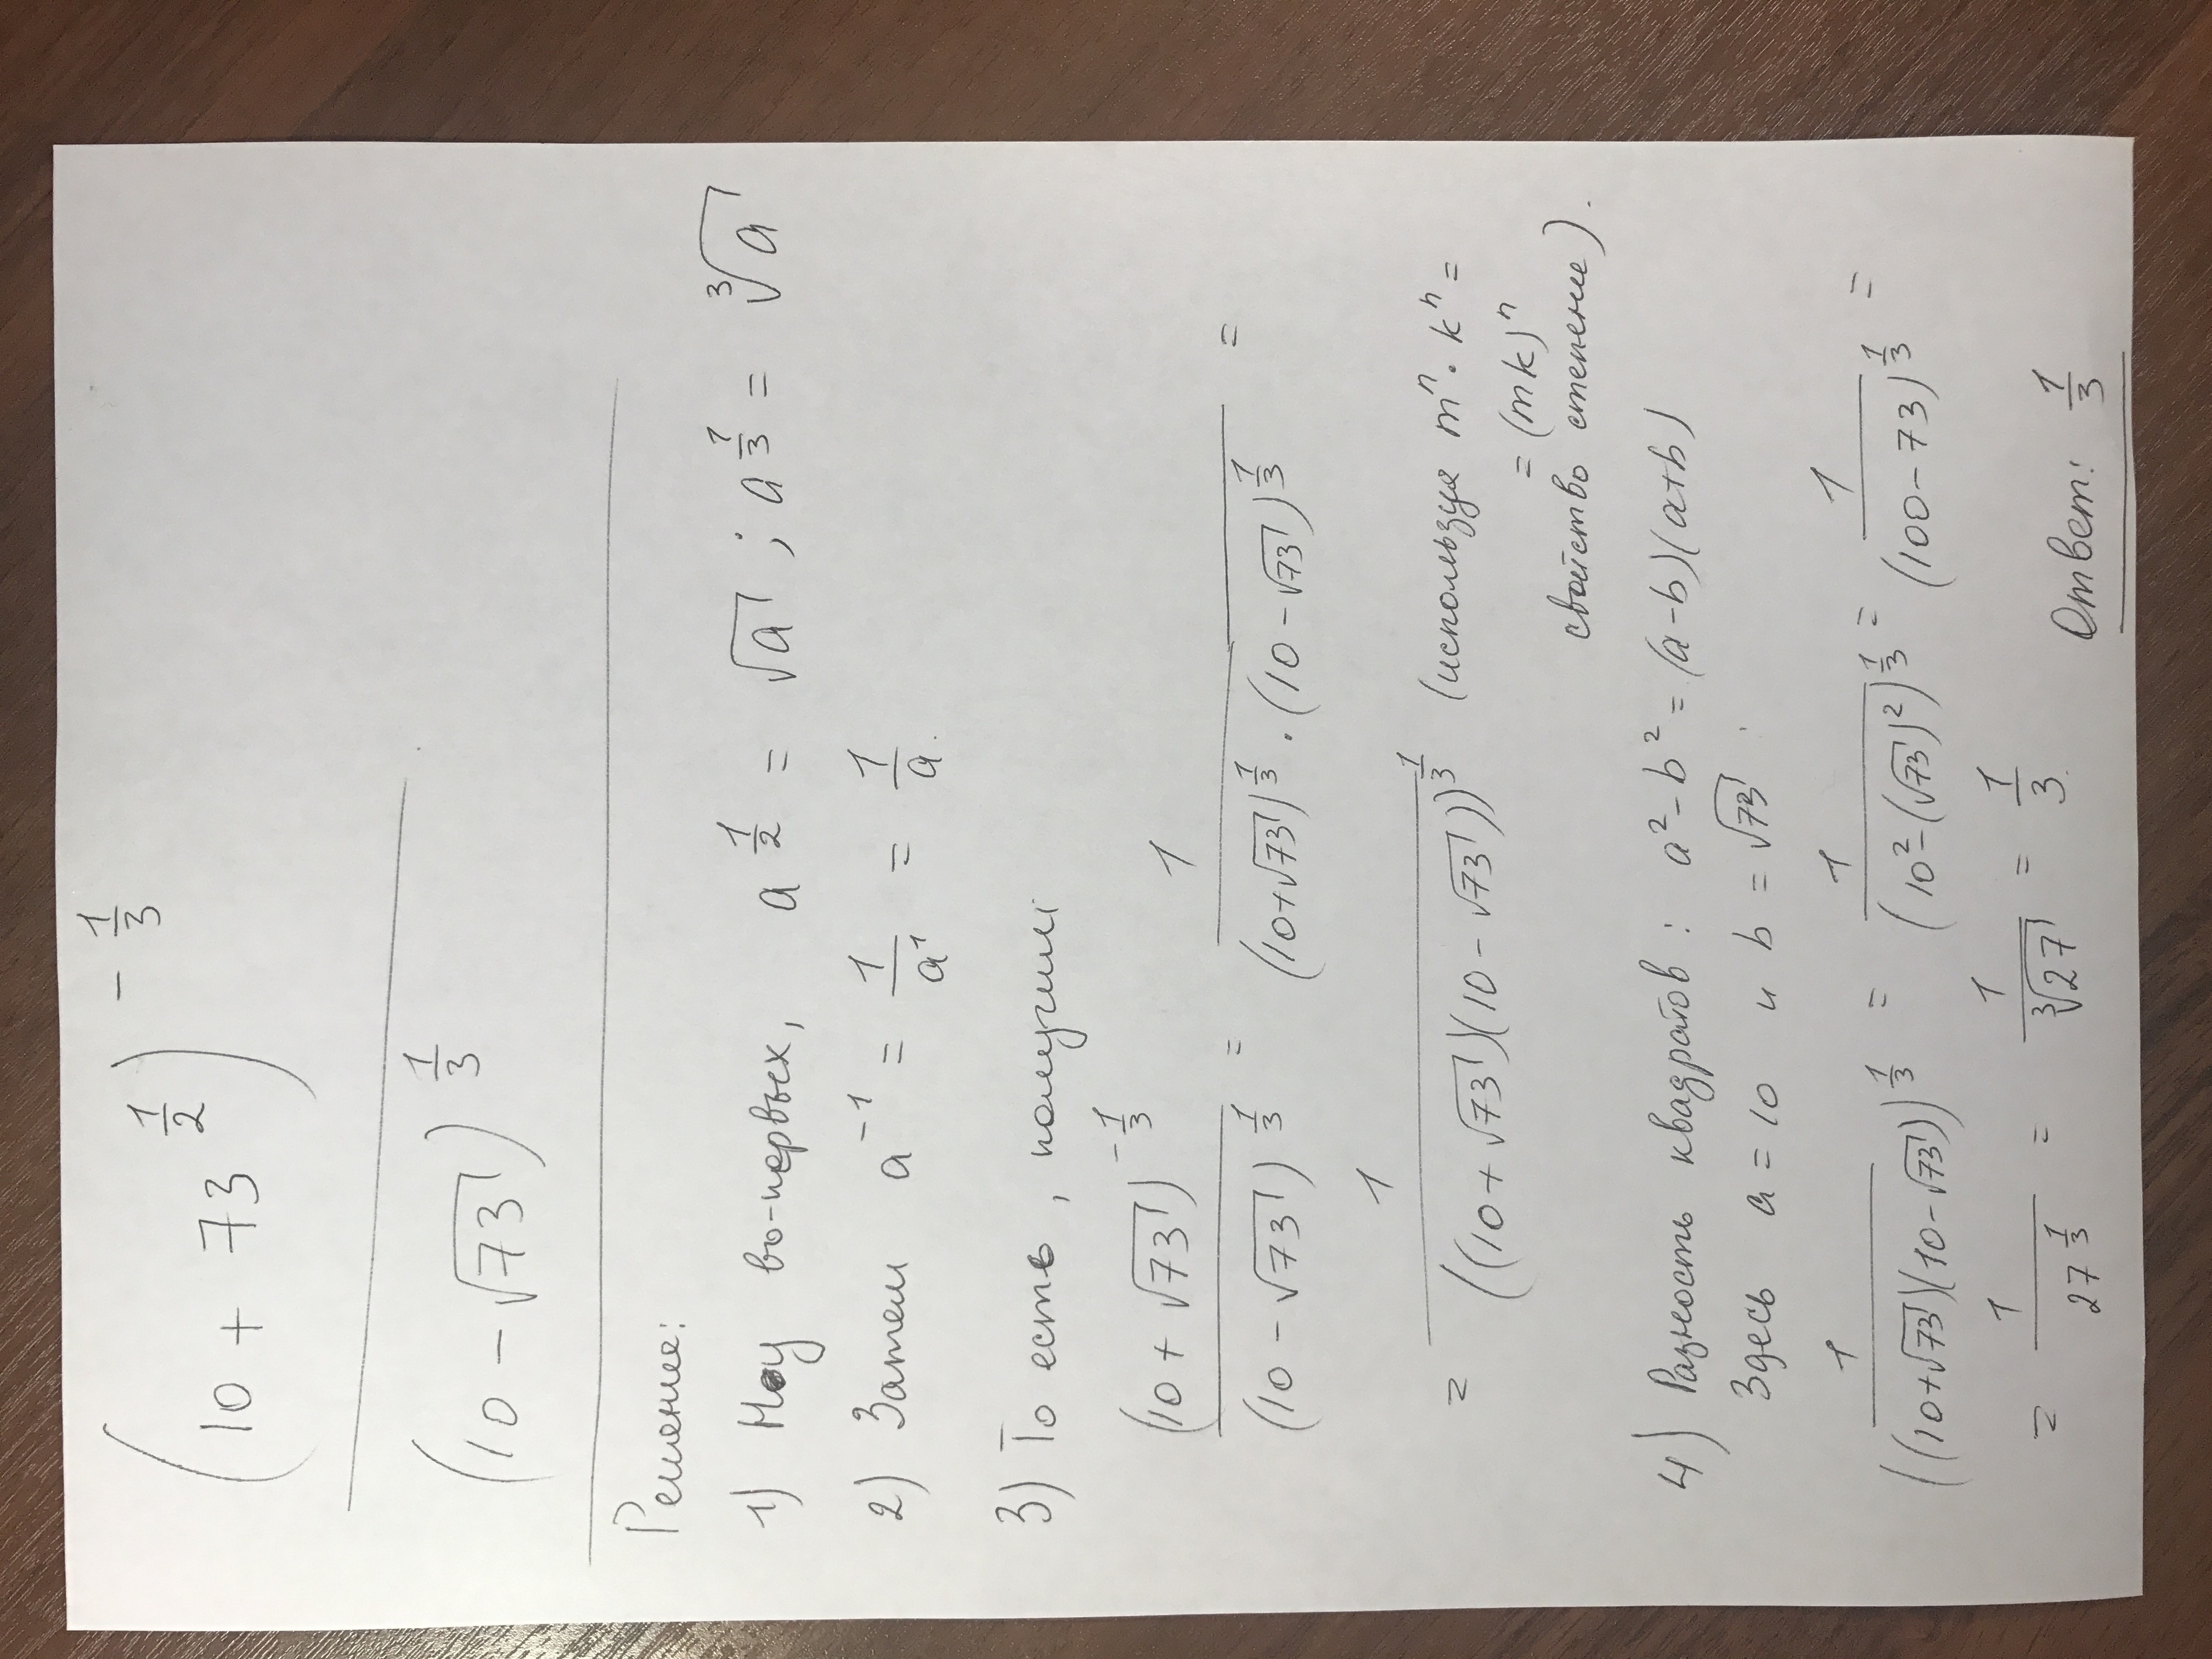 (10 + 73^(1/2))^(-1/3)
(10 - √73)^(1/3)
Решение:
1) Ну во-первых, a^(1/2) = √a ; a^(1/3) = ∛a
2) Затем a^(-1) = 1/a^1 = 1/a.
3) То есть, получим
(10 + √73)^(-1/3) / (10 - √73)^(1/3) = 1 / ((10+√73)^(1/3) · (10 - √73)^(1/3)) =
= 1 / ((10 + √73)(10 - √73))^(1/3) (используя m^n · k^n =
= (mk)^n
свойство степени).
4) Разность квадратов : a² - b² = (a-b)(a+b)
Здесь a = 10 и b = √73.
1 / ((10+√73)(10-√73))^(1/3) = 1 / (10² - (√73)²)^(1/3) = 1 / (100-73)^(1/3) =
= 1 / 27^(1/3) = 1 / ∛27 = 1/3.
Ответ: 1/3